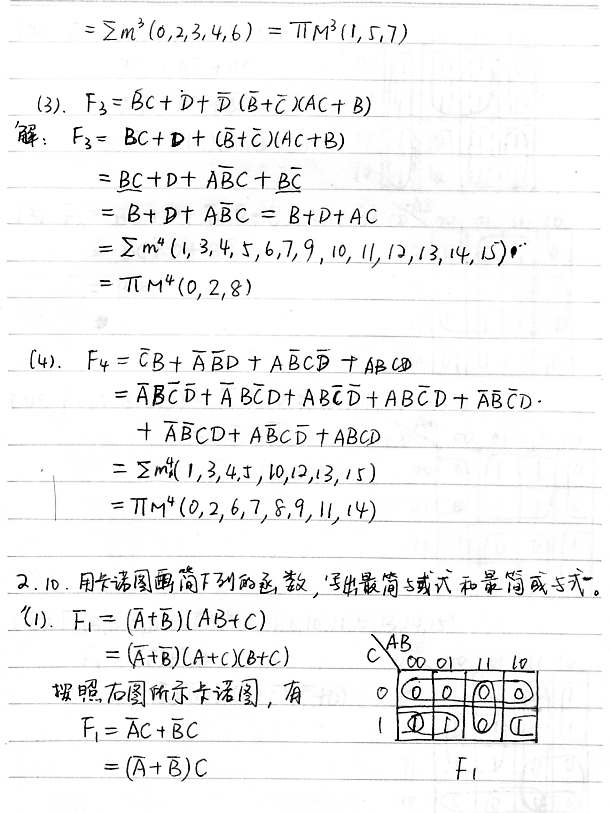 = Σm³(0,2,3,4,6) = ΠM³(1,5,7)
(3). F₃ = B̄C + D + D̄(B̄+C̄)(AC+B)
解: F₃ = BC + D + (B̄+C̄)(AC+B)
= BC + D + AB̄C + BC̄
= B + D + AB̄C = B + D + AC
= Σm⁴(1,3,4,5,6,7,9,10,11,12,13,14,15)
= ΠM⁴(0,2,8)
(4). F₄ = C̄B + ĀB̄D + AB̄CD̄ + ABCD
= ĀBC̄D̄ + ĀBC̄D + ABC̄D̄ + ABC̄D + ĀB̄C̄D
+ ĀB̄CD + AB̄CD̄ + ABCD
= Σm⁴(1,3,4,5,10,12,13,15)
= ΠM⁴(0,2,6,7,8,9,11,14)
2.10. 用卡诺图画简下列的函数,写出最简与或式和最简或与式。
(1). F₁ = (Ā+B̄)(AB+C)
= (Ā+B̄)(A+C)(B+C)
按照右图所示卡诺图,有
F₁ = ĀC + B̄C
= (Ā+B̄)C
AB
C 00 01 11 10
0 0 0 0 0
1 1 1 0 1
F₁